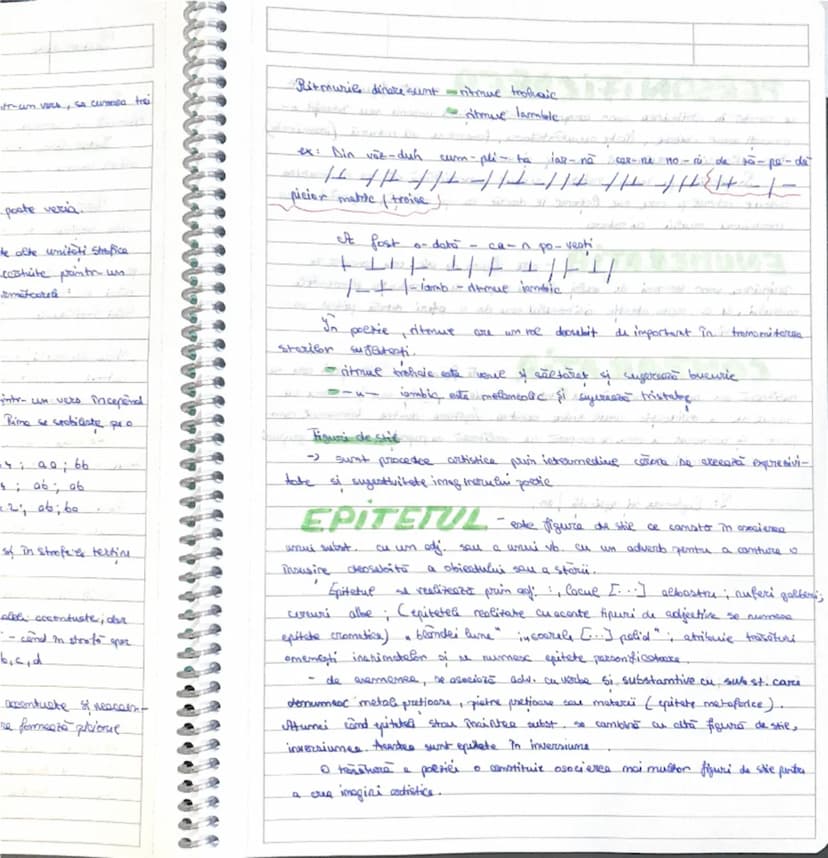 într-un vers, se cumosc trei
poate veria.
te alte unități strofice
costruite printr-un
următoarele:
într-un vers începând
Rima se stabilește pe o
4; aa; bb
; ab; ab
2; ab; ba
și în strofele terține
accentuate, dar
- când în strofă apar
b, c, d
accentuate și neaccen-
se formează piciorul
Ritmurile binare sunt - ritmul trohaic
- ritmul iambic
ex: Din văz-duh cum-pli-ta iar-nă cer-ne no-rii de ză-pa-dă
picior metric (troheu)
A fost o-dată - ca-n po-vești
iamb - ritmul iambic
În poezie, ritmul are un rol deosebit de important în transmiterea
stărilor sufletești.
- ritmul trohaic este vesel și săltăreț și sugerează bucurie
- -u- iambic este melancolic și sugerează tristețe
Figuri de stil
-> sunt procedee artistice prin intermediul cărora se creează expresivi-
tate și sugestivitate imaginarului poetic
EPITETUL - este figura de stil ce constă în asocierea
unui subst. cu un adj. sau a unui vb. cu un adverb pentru a contura o
însușire deosebită a obiectului sau a stării.
Epitetul se realizează prin adj.: „lacul [...] albastru; nuferi galbeni;
cercuri albe; (epitetele realizate cu aceste tipuri de adjective se numesc
epitete cromatice) „blândei lune" [...] palid"; atribuie trăsături
omenești inanimatelor și se numesc epitete personificatoare.
- de asemenea, se asociază adv. cu verbe și substantive cu subst. care
denumesc metale prețioase, pietre prețioase sau materii (epitete metaforice).
Atunci când epitetele stau înaintea subst. se combină cu altă figură de stil,
inversiunea. Acestea sunt epitete în inversiune.
O trăsătură a poeziei o constituie asocierea mai multor figuri de stil pentru
a crea imagini artistice.